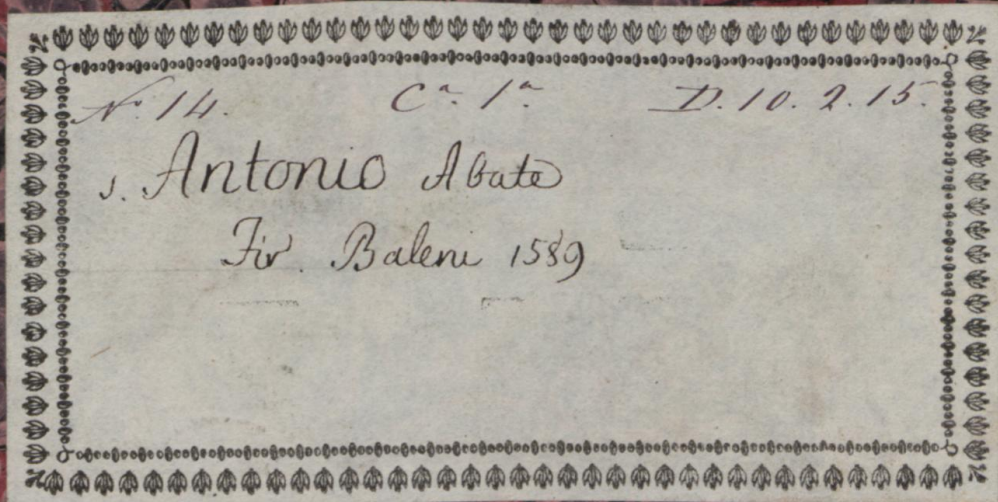 No. 14. Ca. 1a. D. 10. 2. 15.
s. Antonio Abate
Fir. Baleni 1589